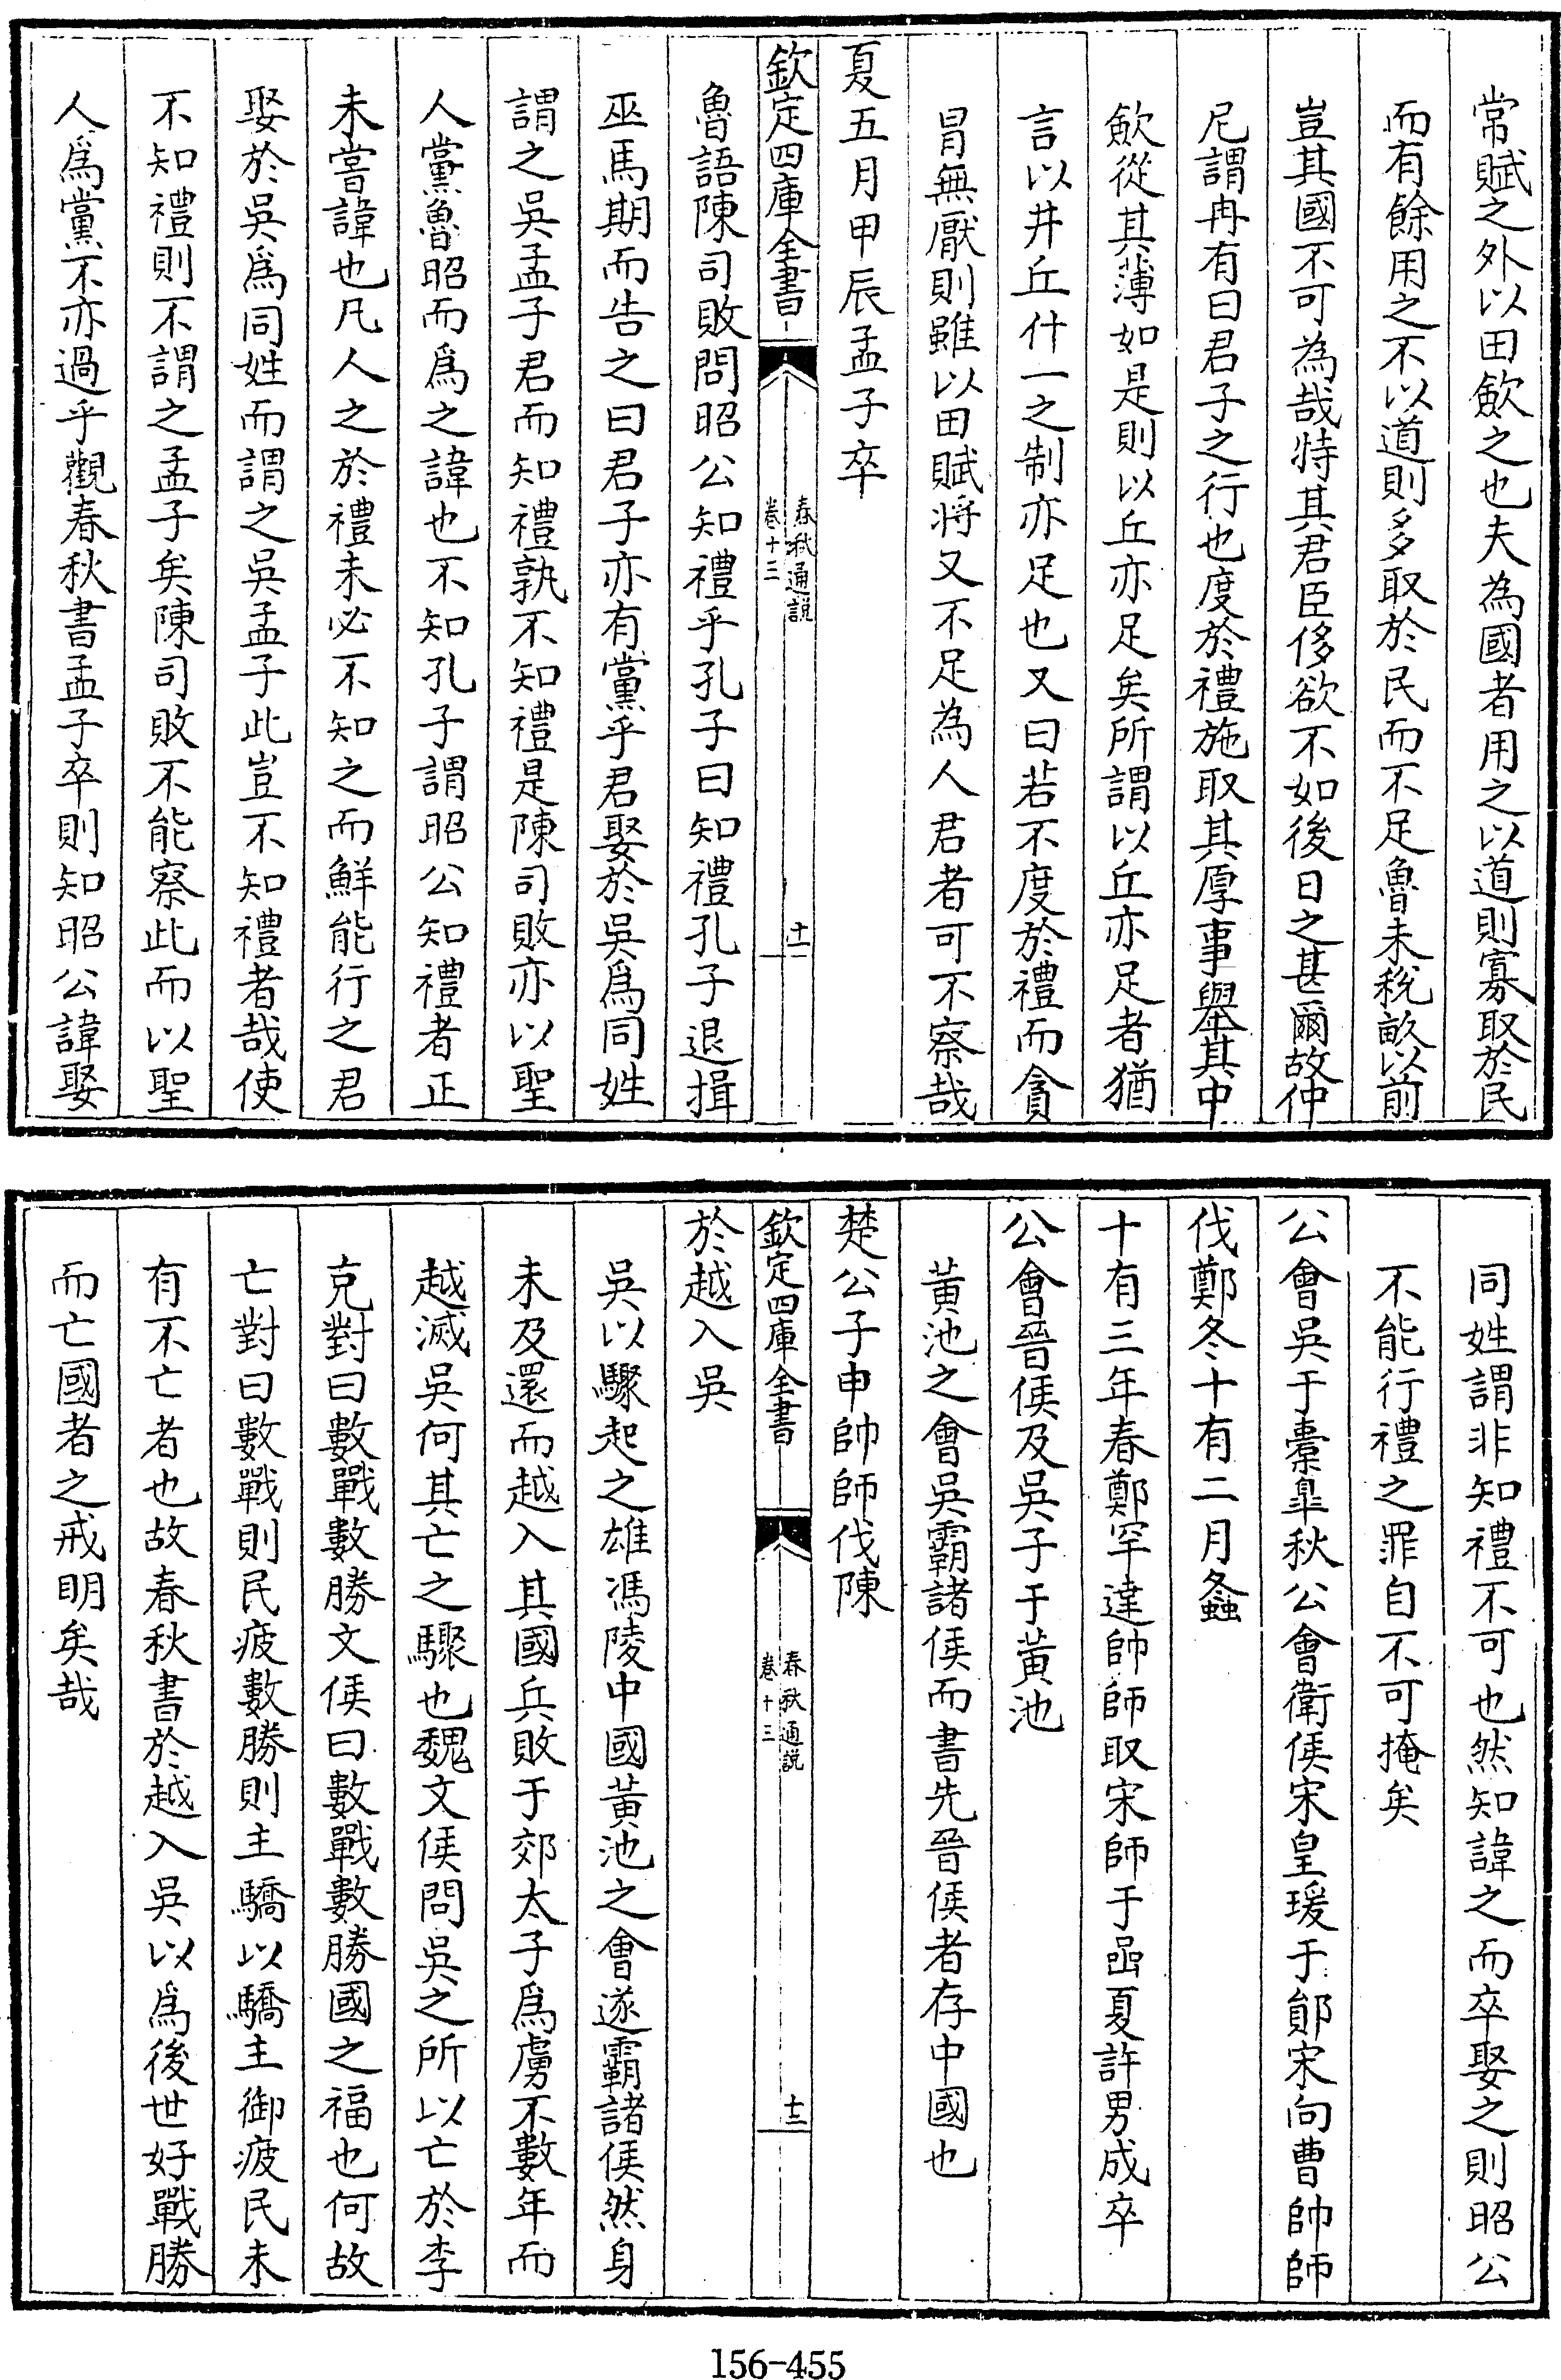 常賦之外以田歛之也夫為國者用之以道則寡取於民
而有餘用之不以道則多取於民而不足魯未稅畝以前
豈其國不可為哉特其君臣侈欲不如後日之甚爾故仲
尼謂冉有曰君子之行也度於禮施取其厚事舉其中
歛從其薄如是則以丘亦足矣所謂以丘亦足者猶
言以井丘什一之制亦足也又曰若不度於禮而貪
冒無厭則雖以田賦將又不足為人君者可不察哉
夏五月甲辰孟子卒
欽定四庫全書
春秋通說
卷十三
十一
魯語陳司敗問昭公知禮乎孔子曰知禮孔子退揖
巫馬期而告之曰君子亦有黨乎君娶於吳爲同姓
謂之吳孟子君而知禮孰不知禮是陳司敗亦以聖
人黨魯昭而爲之諱也不知孔子謂昭公知禮者正
未嘗諱也凡人之於禮未必不知之而鮮能行之君
娶於吳爲同姓而謂之吳孟子此豈不知禮者哉使
不知禮則不謂之孟子矣陳司敗不能察此而以聖
人爲黨不亦過乎觀春秋書孟子卒則知昭公諱娶
同姓謂非知禮不可也然知諱之而卒娶之則昭公
不能行禮之罪自不可掩矣
公會吳于橐臯秋公會衛侯宋皇瑗于鄖宋向曹帥師
伐鄭冬十有二月螽
十有三年春鄭罕達帥師取宋師于嵒夏許男成卒
公會晉侯及吳子于黃池
黃池之會吳霸諸侯而書先晉侯者存中國也
楚公子申帥師伐陳
欽定四庫全書
春秋通說
卷十三
十二
於越入吳
吳以驟起之雄馮陵中國黃池之會遂霸諸侯然身
未及還而越入其國兵敗于郊太子爲虜不數年而
越滅吳何其亡之驟也魏文侯問吳之所以亡於李
克對曰數戰數勝文侯曰數戰數勝國之福也何故
亡對曰數戰則民疲數勝則主驕以驕主御疲民未
有不亡者也故春秋書於越入吳以爲後世好戰勝
而亡國者之戒明矣哉
156-455